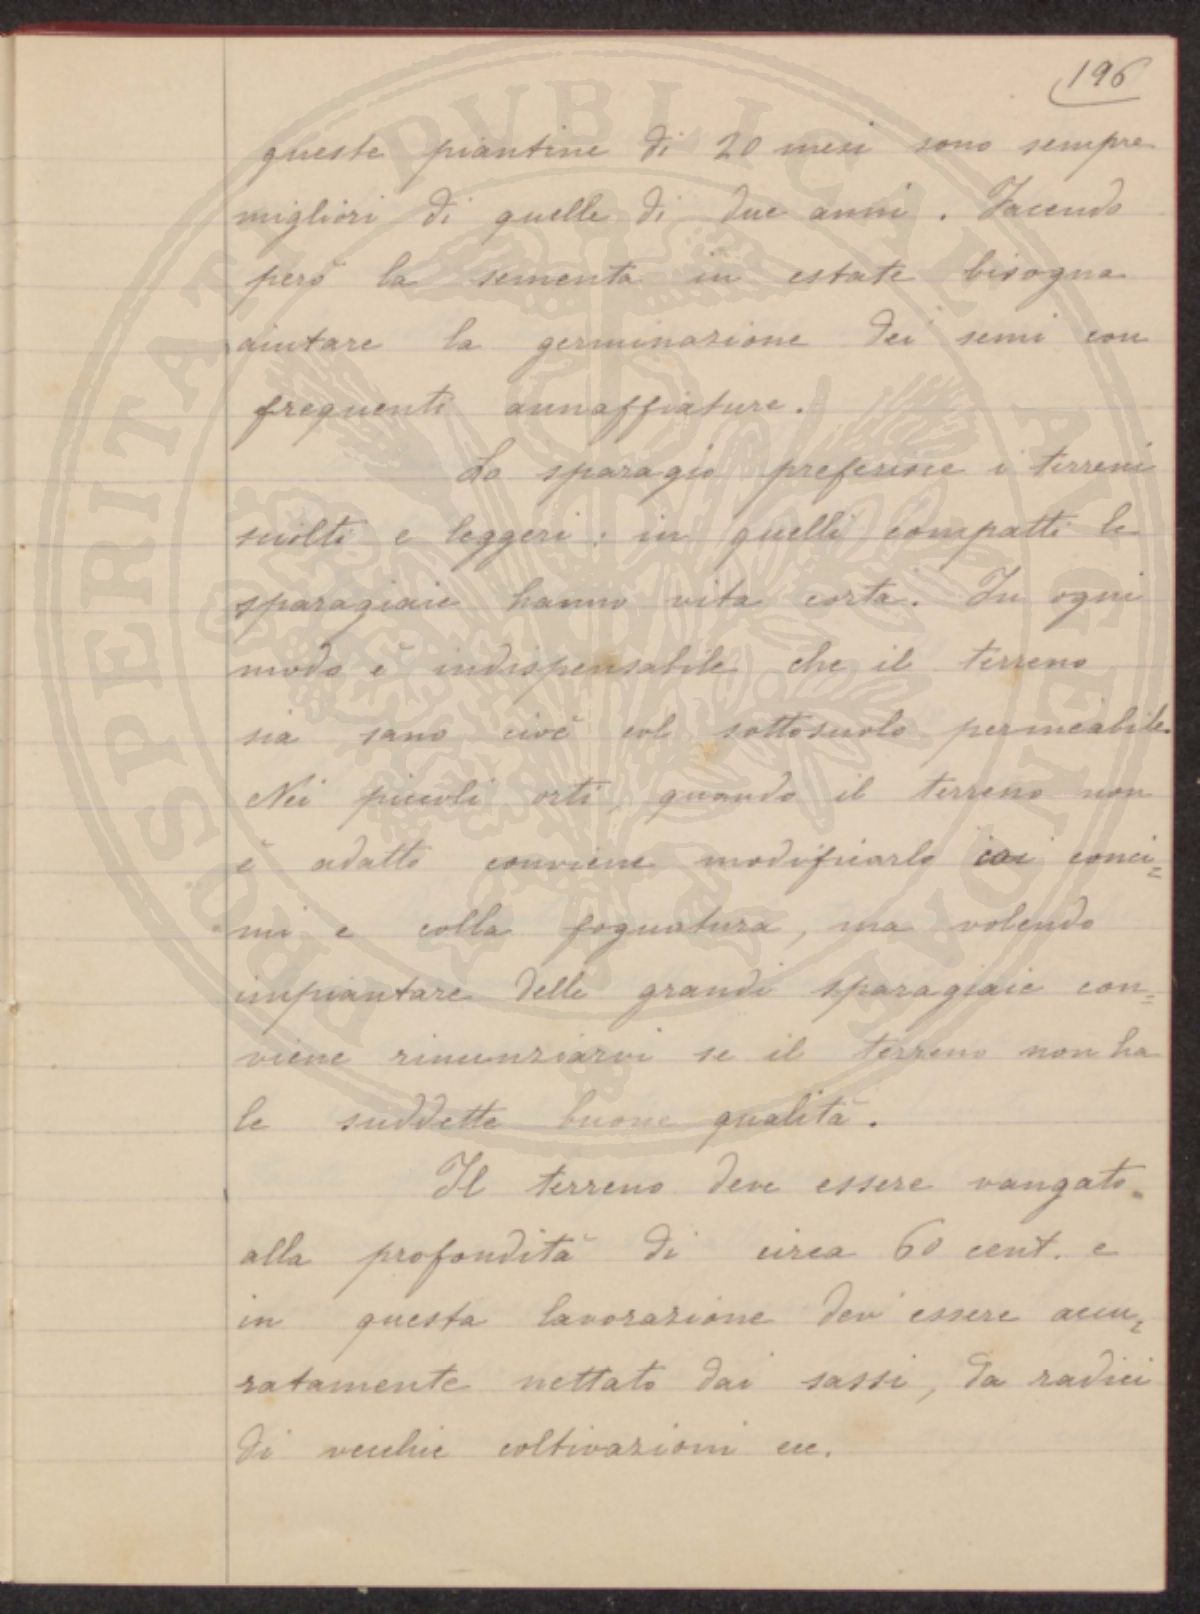 196
queste piantine di 20 mesi sono sempre
migliori di quelle di due anni. Facendo
però la sementa in estate bisogna
aiutare la germinazione dei semi con
frequenti annaffiature.
Lo sparagio preferisce i terreni
sciolti e leggeri: in quelli compatti le
sparagiaie hanno vita corta. In ogni
modo è indispensabile che il terreno
sia sano cioè col sottosuolo permeabile.
Nei piccoli orti, quando il terreno non
è adatto conviene modificarlo coi conci=
mi e colla fognatura, ma volendo
impiantare delle grandi sparagiaie con=
viene rinunziarvi se il terreno non ha
le suddette buone qualità.
Il terreno deve essere vangato
alla profondità di circa 60 cent. e
in questa lavorazione dev' essere accu=
ratamente nettato dai sassi, da radici
di vecchie coltivazioni ecc.
PROSPERITATI PVBLICAE AVGENDAE